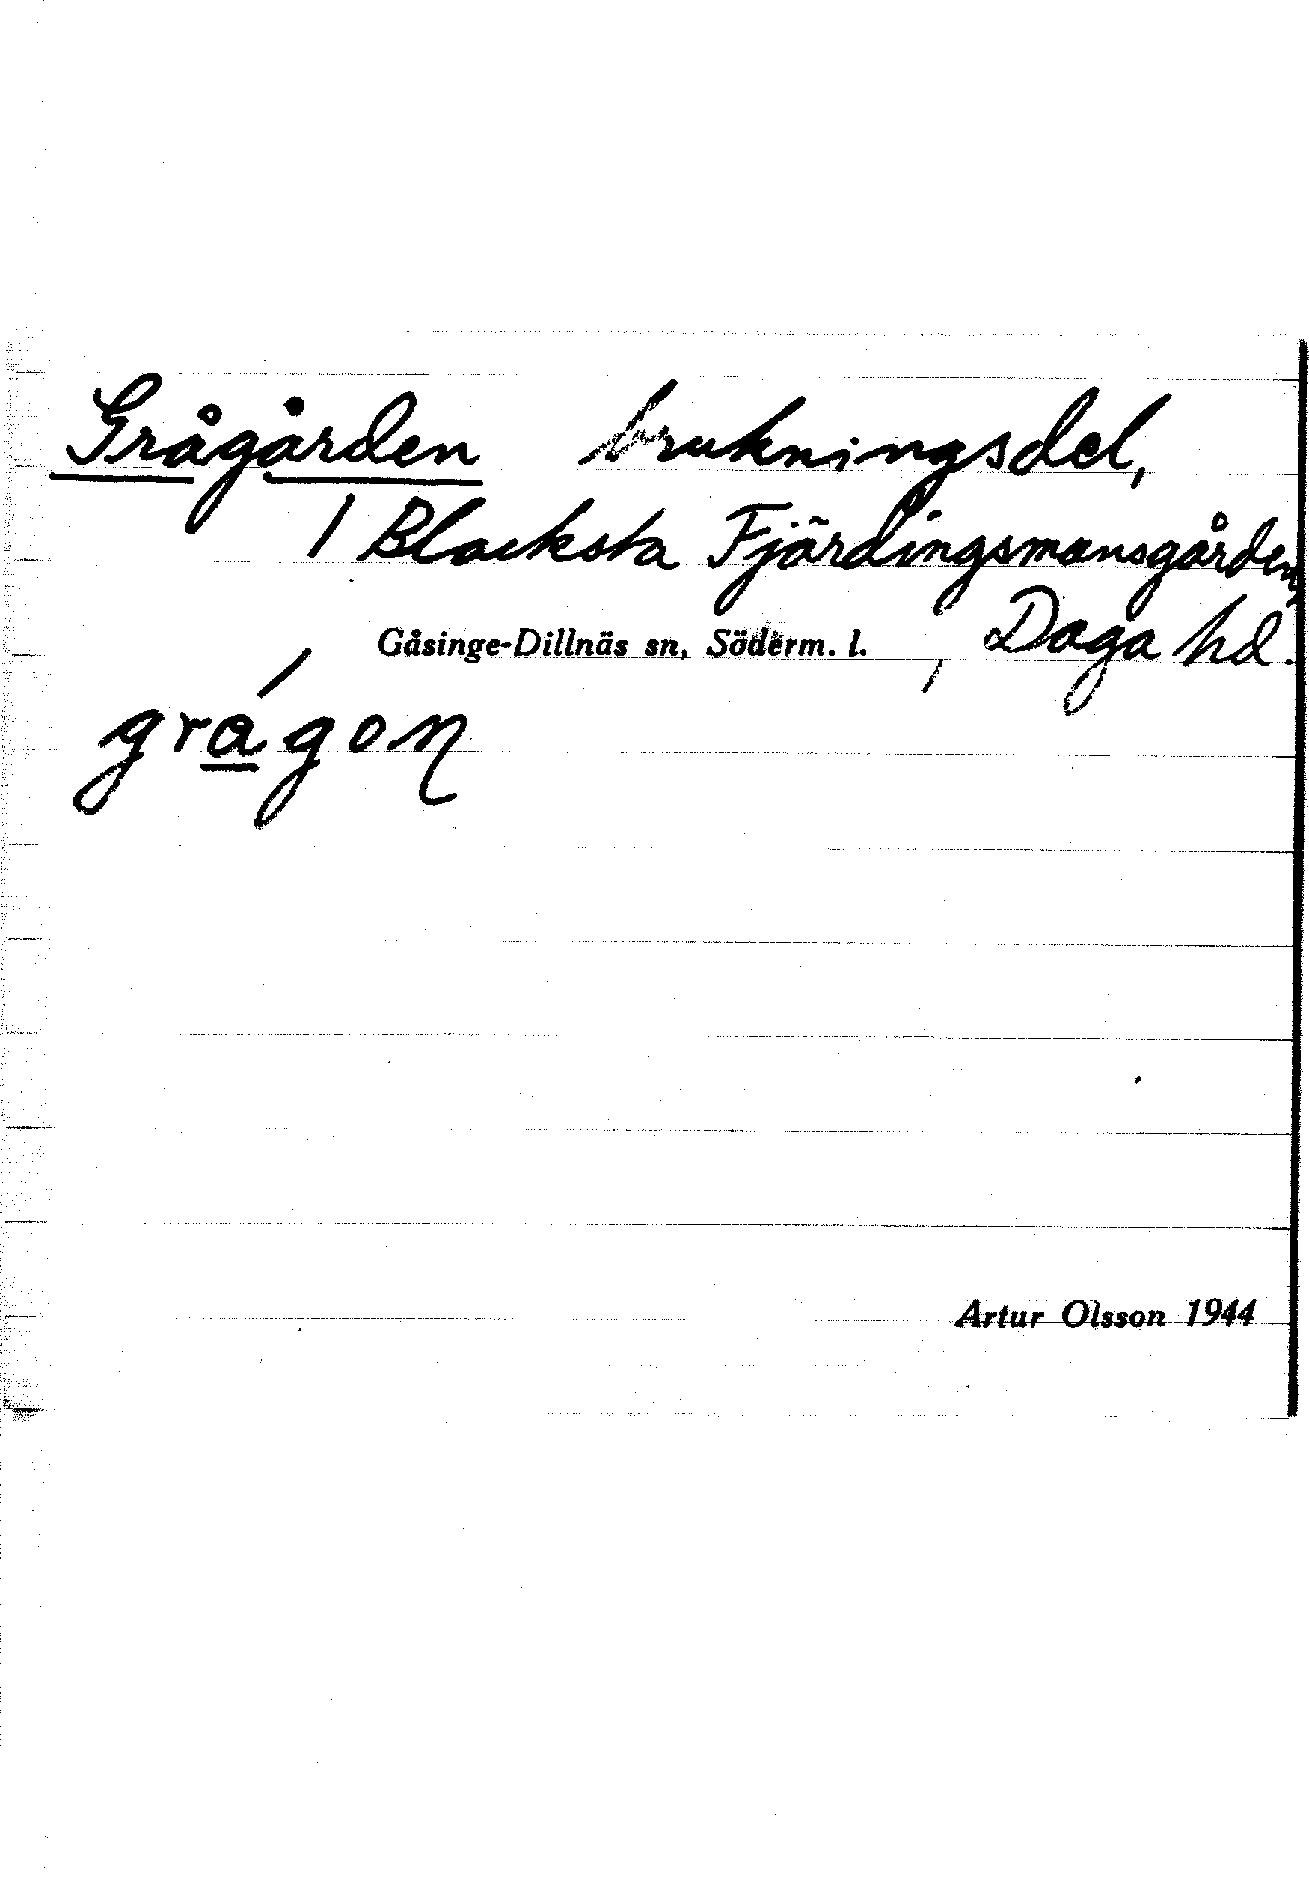 Grågården brukningsdel,
/ Blacksta Fjärdingsmansgården,
Gåsinge-Dillnäs sn, Söderm. l. , Daga hd.
grágon
Artur Olsson 1944